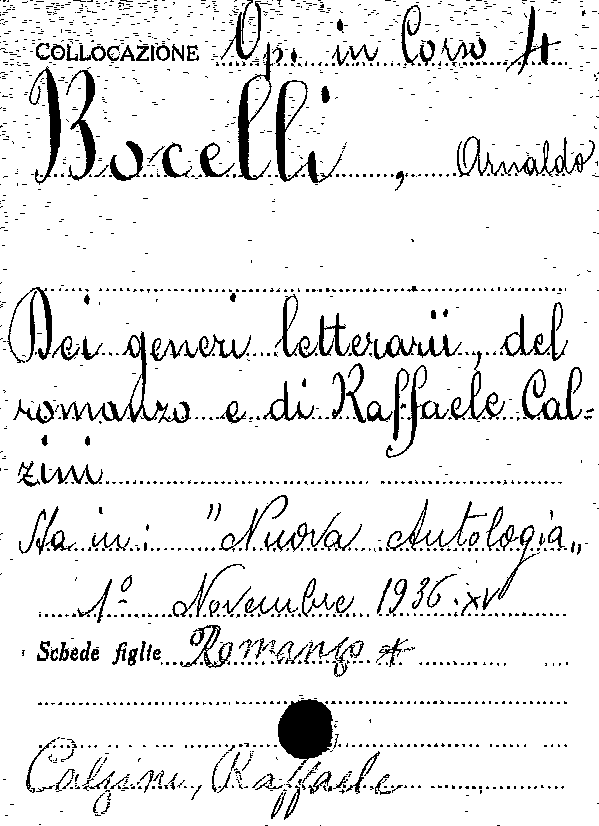 COLLOCAZIONE Op. in Corso 4
Bocelli, (Arnaldo)
Dei generi letterarii, del
romanzo e di Raffaele Cal-
zini
Sta in: "Nuova Antologia„
1º Novembre 1936.XV
Schede figlie Romanzo *
Calzini, Raffaele